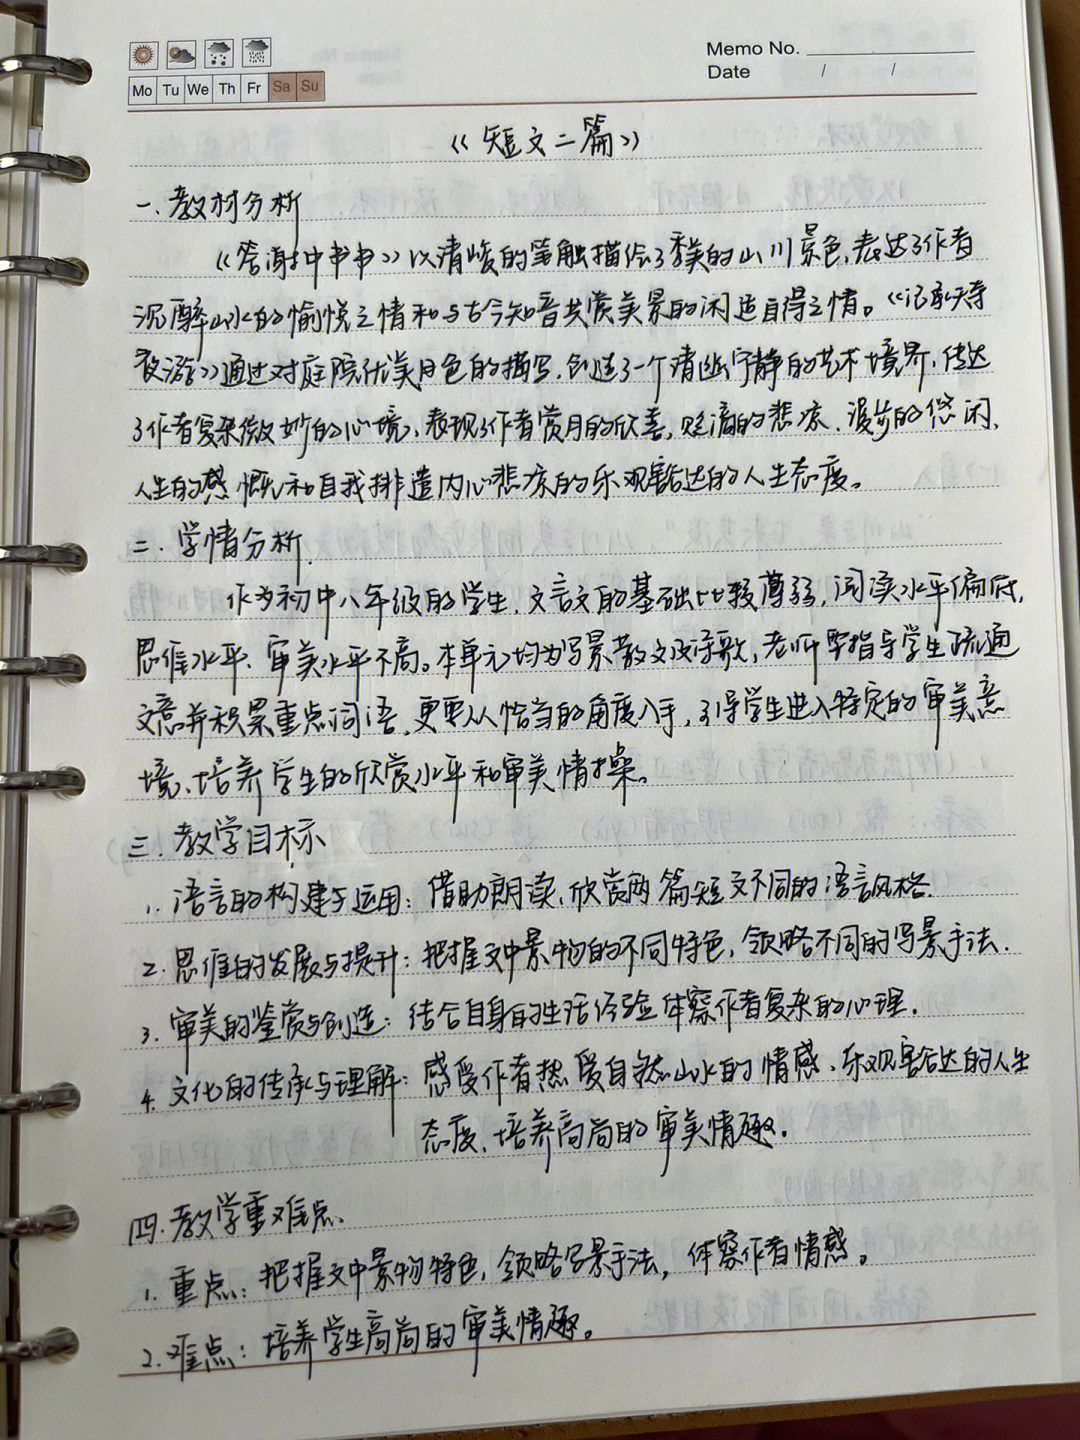 Memo No.
Date / /
Mo Tu We Th Fr Sa Su
《短文二篇》
一.教材分析
《答谢中书书》以清峻的笔触描绘了秀美的山川景色,表达了作者
沉醉山水的愉悦之情和与古今知音共赏美景的闲适自得之情。《记承天寺
夜游》通过对庭院优美月色的描写,创造了一个清幽宁静的艺术境界,传达
了作者复杂微妙的心境,表现了作者赏月的欣喜,贬谪的悲凉,漫步的悠闲,
人生的感慨和自我排遣内心悲凉的乐观豁达的人生态度。
二.学情分析
作为初中八年级的学生,文言文的基础比较薄弱,阅读水平偏低,
思维水平、审美水平不高。本单元均为写景散文及诗歌,老师要指导学生疏通
文意并积累重点词语,更要从恰当的角度入手,引导学生进入特定的审美意
境,培养学生的欣赏水平和审美情操。
三.教学目标
1.语言的构建与运用:借助朗读,欣赏两篇短文不同的语言风格.
2.思维的发展与提升:把握文中景物的不同特色,领略不同的写景手法.
3.审美的鉴赏与创造:结合自身的生活经验体察作者复杂的心理.
4.文化的传承与理解:感受作者热爱自然山水的情感、乐观豁达的人生
态度,培养高尚的审美情趣.
四.教学重难点.
1.重点:把握文中景物特色,领略写景手法,体察作者情感。
2.难点:培养学生高尚的审美情趣。